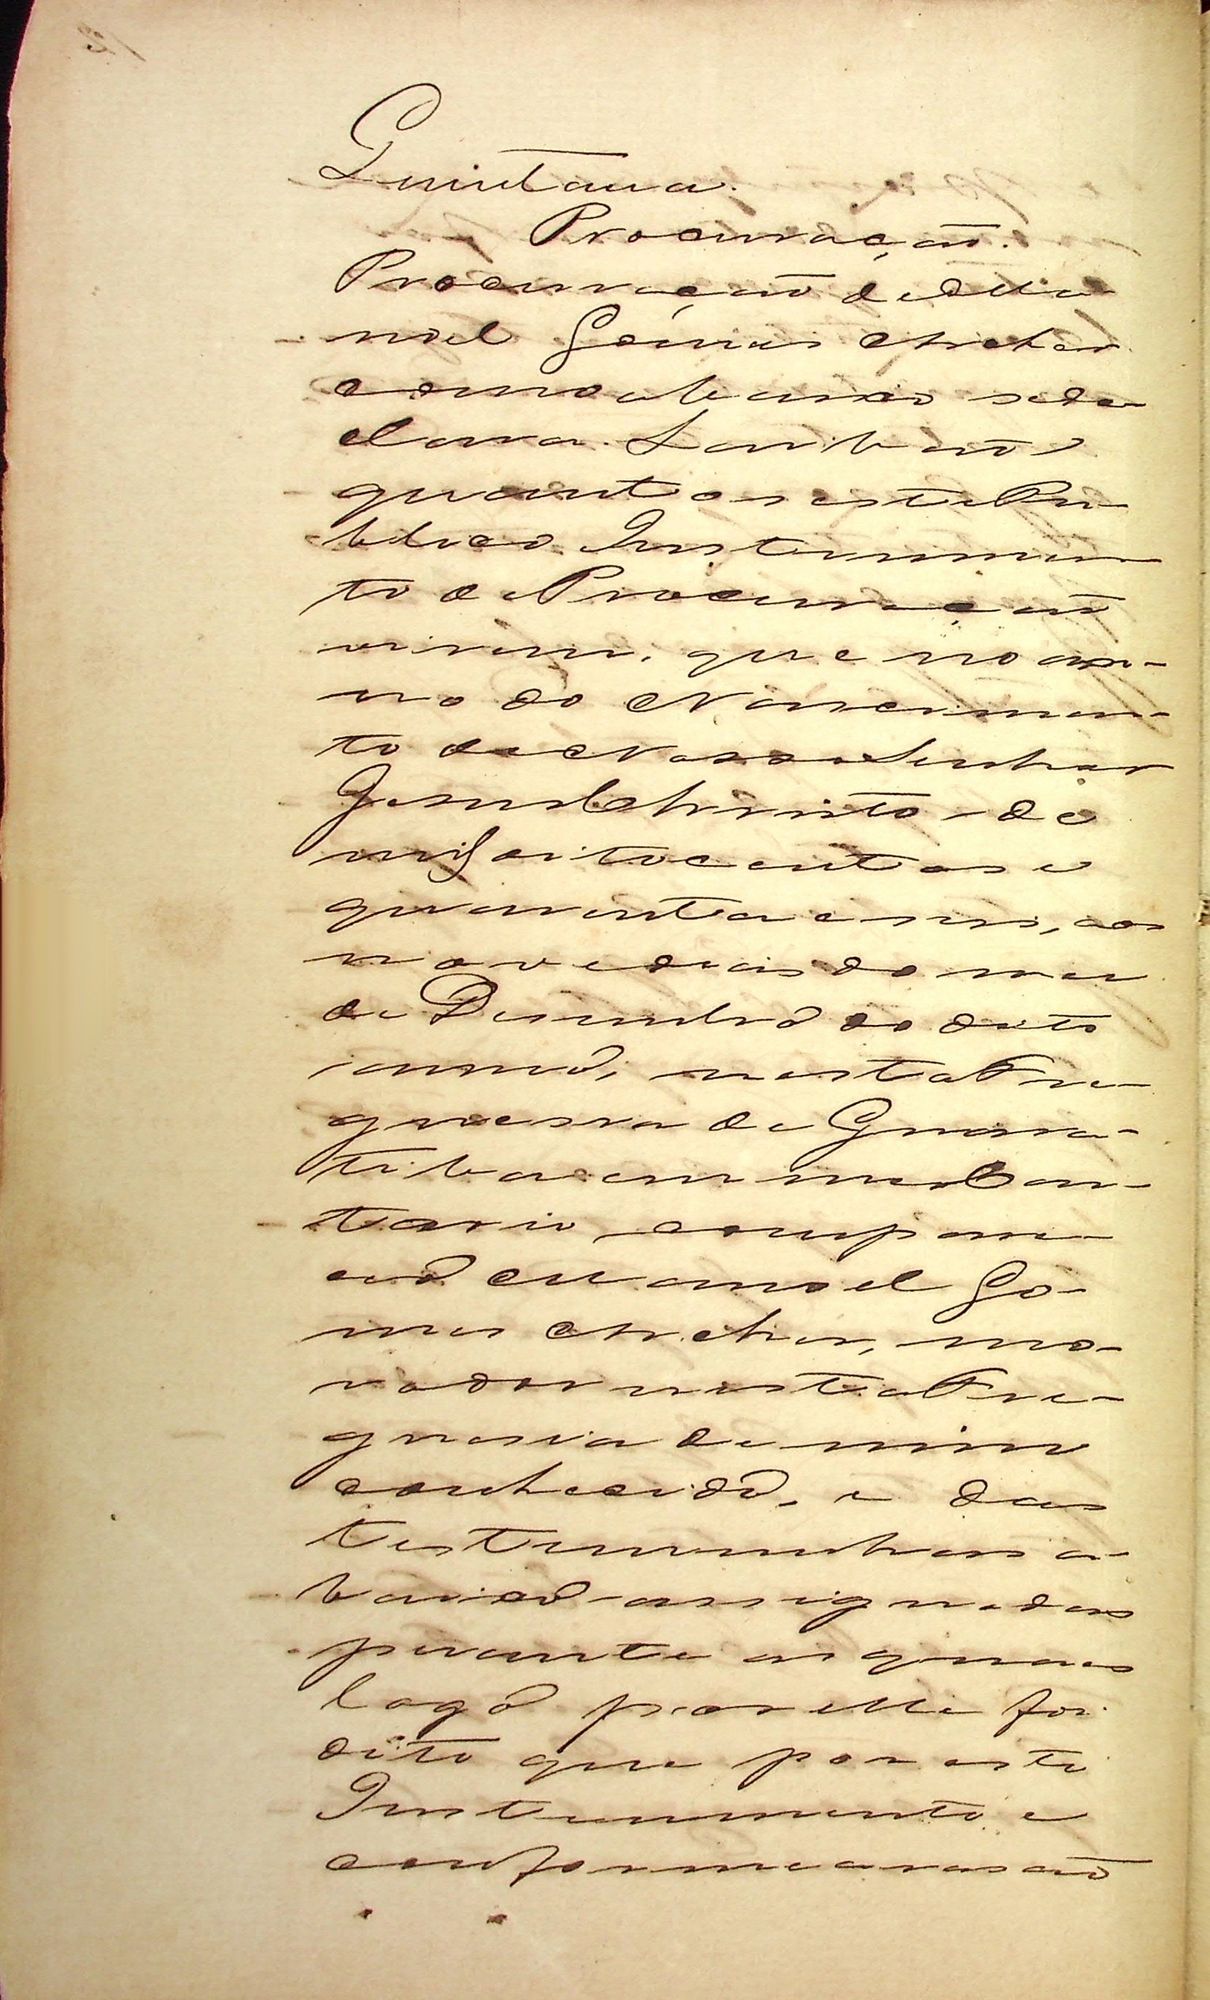 Quintana.
Procuração.
Procuração de Ma-
noel Gomes Archer
como abaixo se de-
clara. Saibaõ
quantos este Pu-
blico Instrumen-
to de Procuração
virem, que no an-
no do Nascimen-
to de Nosso Senhor
Jesus Christo de
mil oito centos e
quarenta e seis, aos
nove dias do mez
de Dezembro do dito
anno, nesta Fre-
guesia de Guara-
tiba em meu Car-
torio compare-
ceo Manoel Go-
mes Archer, mo-
rador nesta Fre-
guesia de mim
conhecido, e das
testemunhas a-
baixo assignadas
perante as quaes
logo por elle foi
dito que por este
Instrumento e
conforme a rasaõ